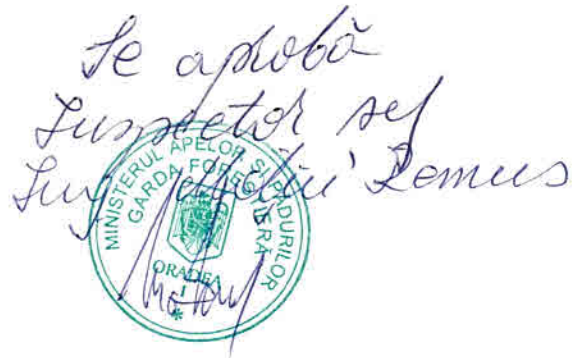 Se aprobă
Inspector șef
Ing. Remus
MINISTERUL APELOR ȘI PĂDURILOR
GARDA FORESTIERĂ
ORADEA
1
*